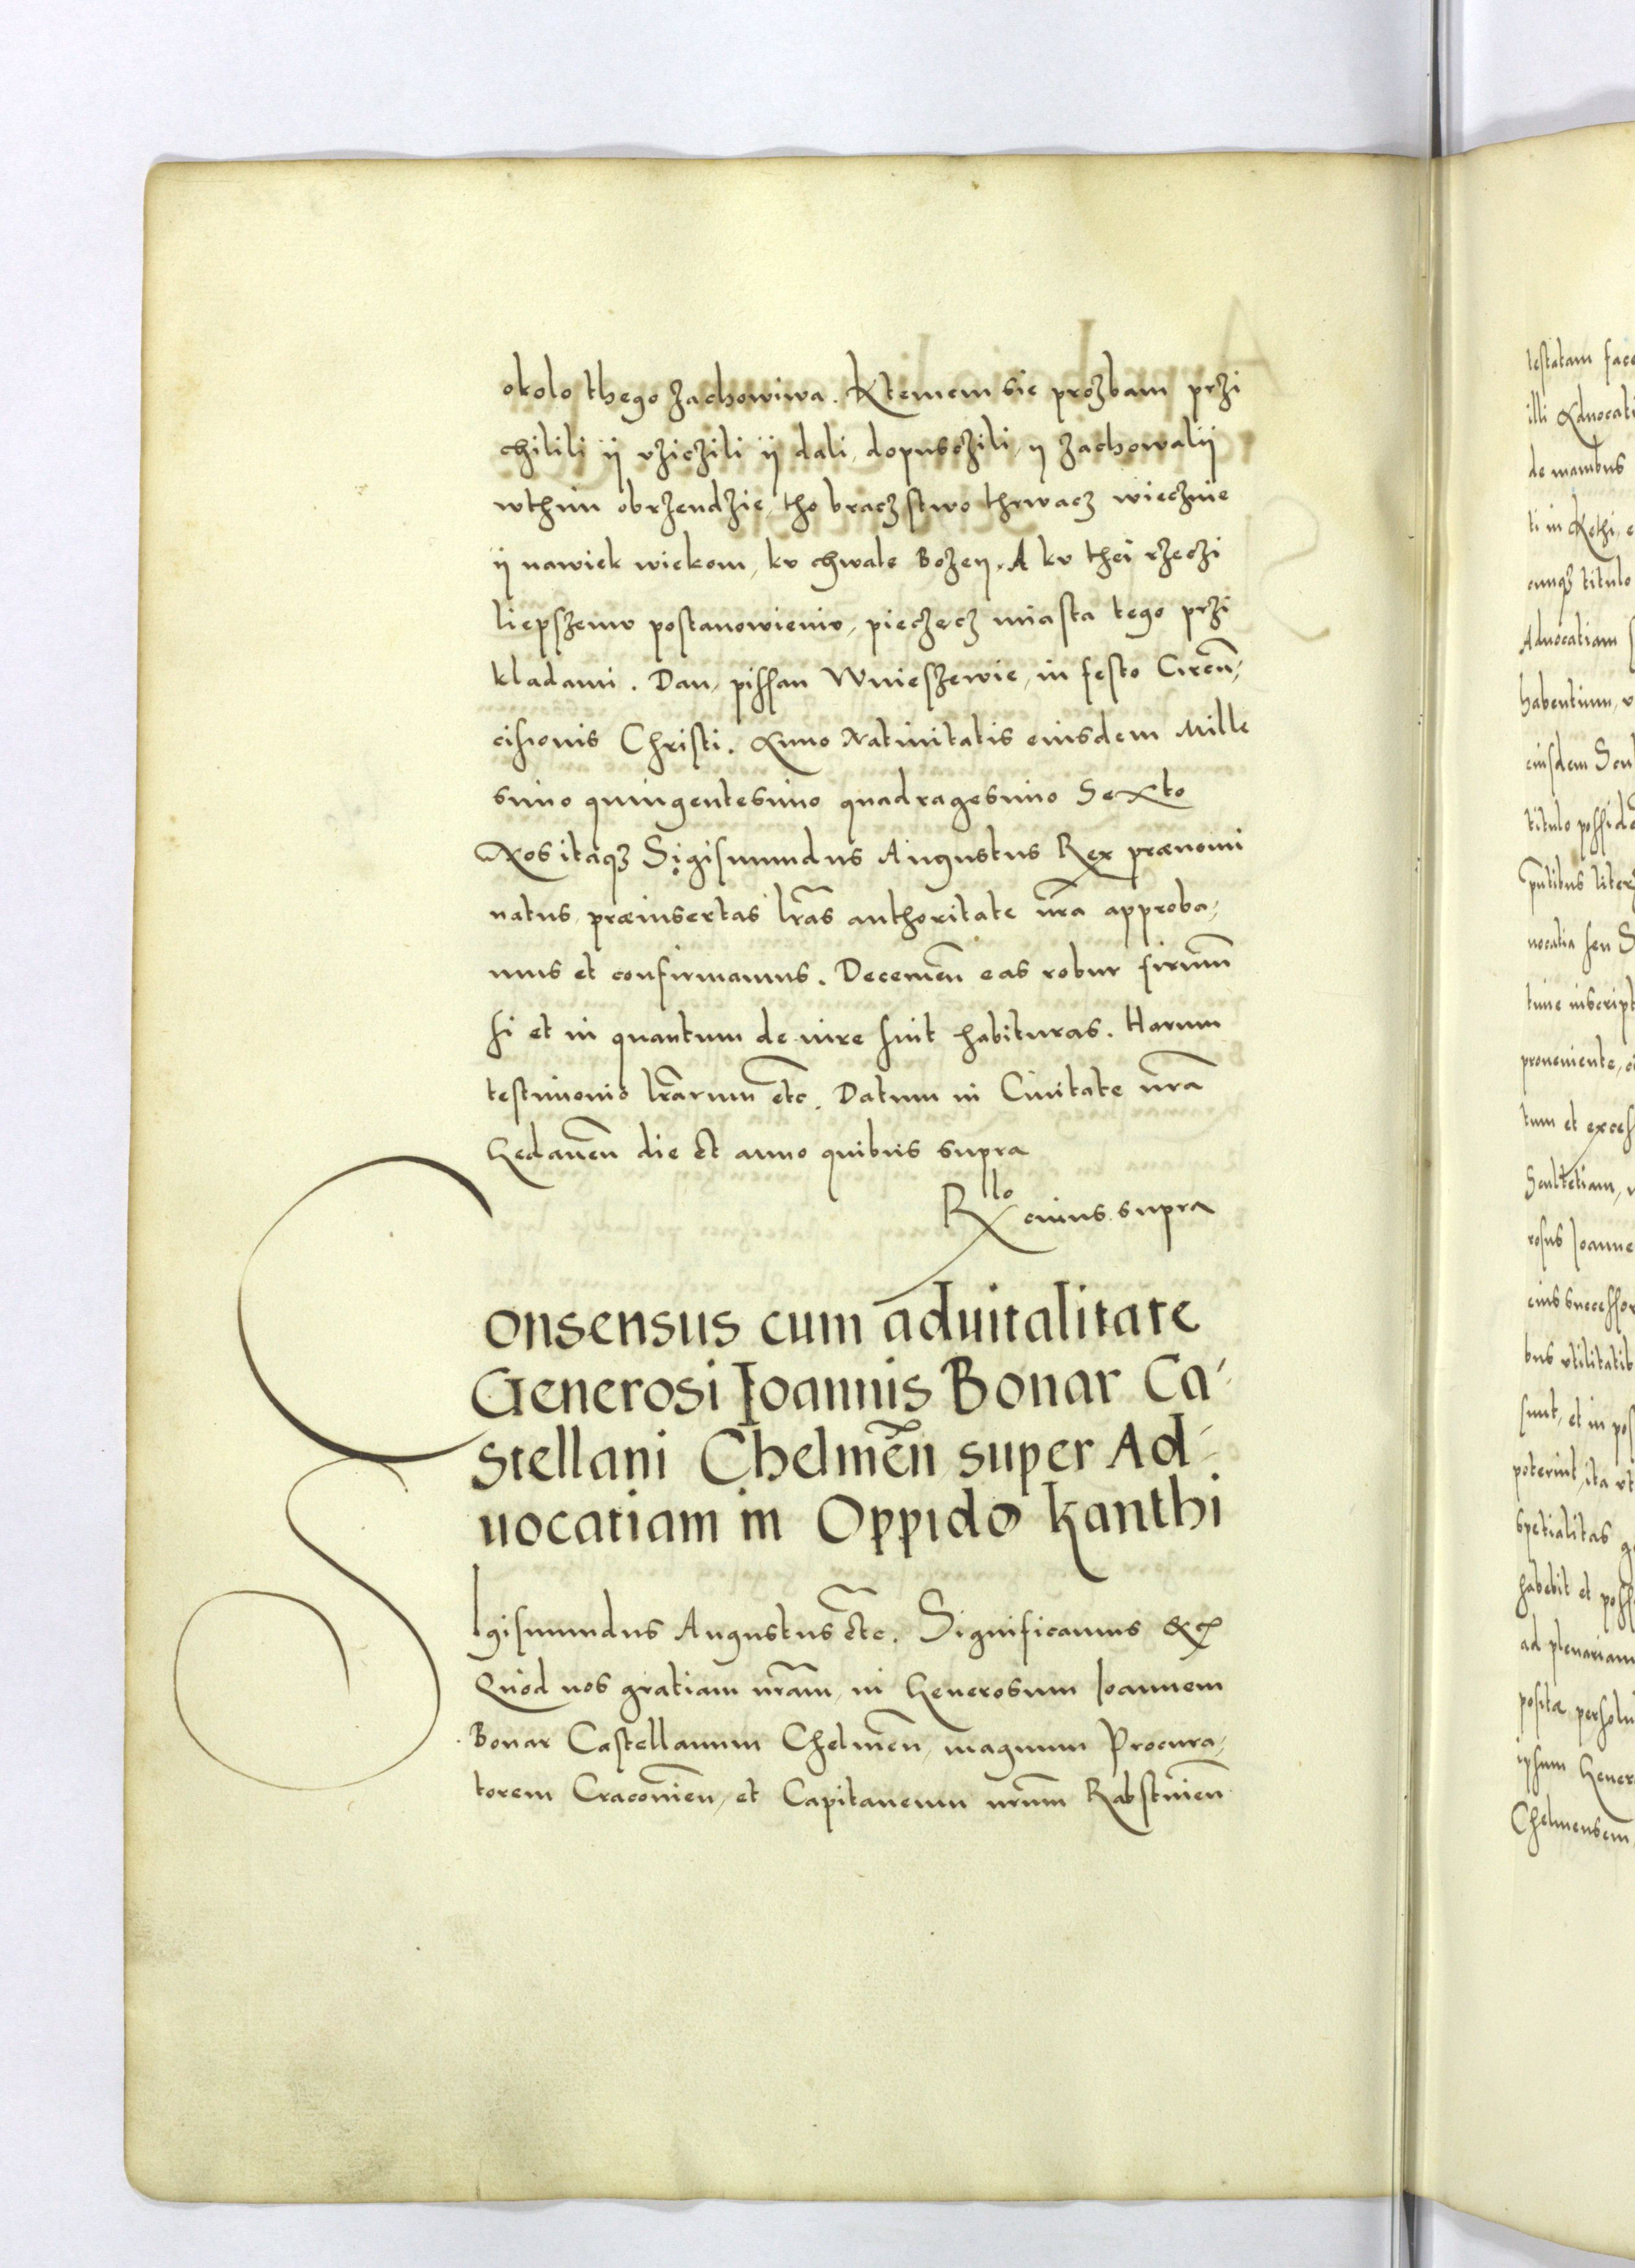 okolo thego zachowiwa. Ktemem sie prozbam przi
chilili ÿ vzicżili ÿ dali, dopuscżili, ÿ zachowalÿ
wthim obrzendzie, tho bracżstwo thrwacż wiecżnie
ÿ nawiek wiekom, kv chwale Bożeÿ. A kv thei rzecżi
liepszemv postanowieniv, piecżęcż miasta tego przi
kładami. Dan, pissan Wnieszewie, in festo Circu̅,
cisionis Christi. Anno Natiuitatis eiusdem Mille
simo quingentesimo quadragesimo Sexto
Nos itaqȝ Sigismundus Augustus Rex prænomi
natus, præinsertas lr̃as authoritate nr̃a approba,
mus et confirmamus. Decernen̅ eas robur firmu̅
si et in quantum de iure sint habituras. Harum
testimonio lr̃arum etc̃. Datum in Ciuitate nr̃a
Gedanen̅ die et anno quibus supra
Rlo cuius supra
Consensus cum aduitalitate
Generosi Ioannis Bonar Ca-
stellani Chelmen̅ super Ad-
uocatiam in Oppido Kanthi
Sigismundus Augustus etc̃. Significamus &c
Quod nos gratiam nr̃am, in Generosum Ioannem
Bonar Castellanum Chelmen̅, magnum Procura,
torem Cracouien̅, et Capitaneum nr̃um Rabstinen̅
testatam face
illi Aduocati
de manibus
ti in Kethi, e
cunqȝ titulo
Aduocatiam
habentium, v
eiusdem Scul
titulo possid
nocatia seu S
tune inscript
proueniente,
tum et excess
Scultetiam,
rosus Ioanne
eius successor
bus vtilitatib
sunt, et in pos
poterint, ita vt
spetialitas
habebit et poss
ad plenariam
posita persolu
ipsum Gener
Chelmensem